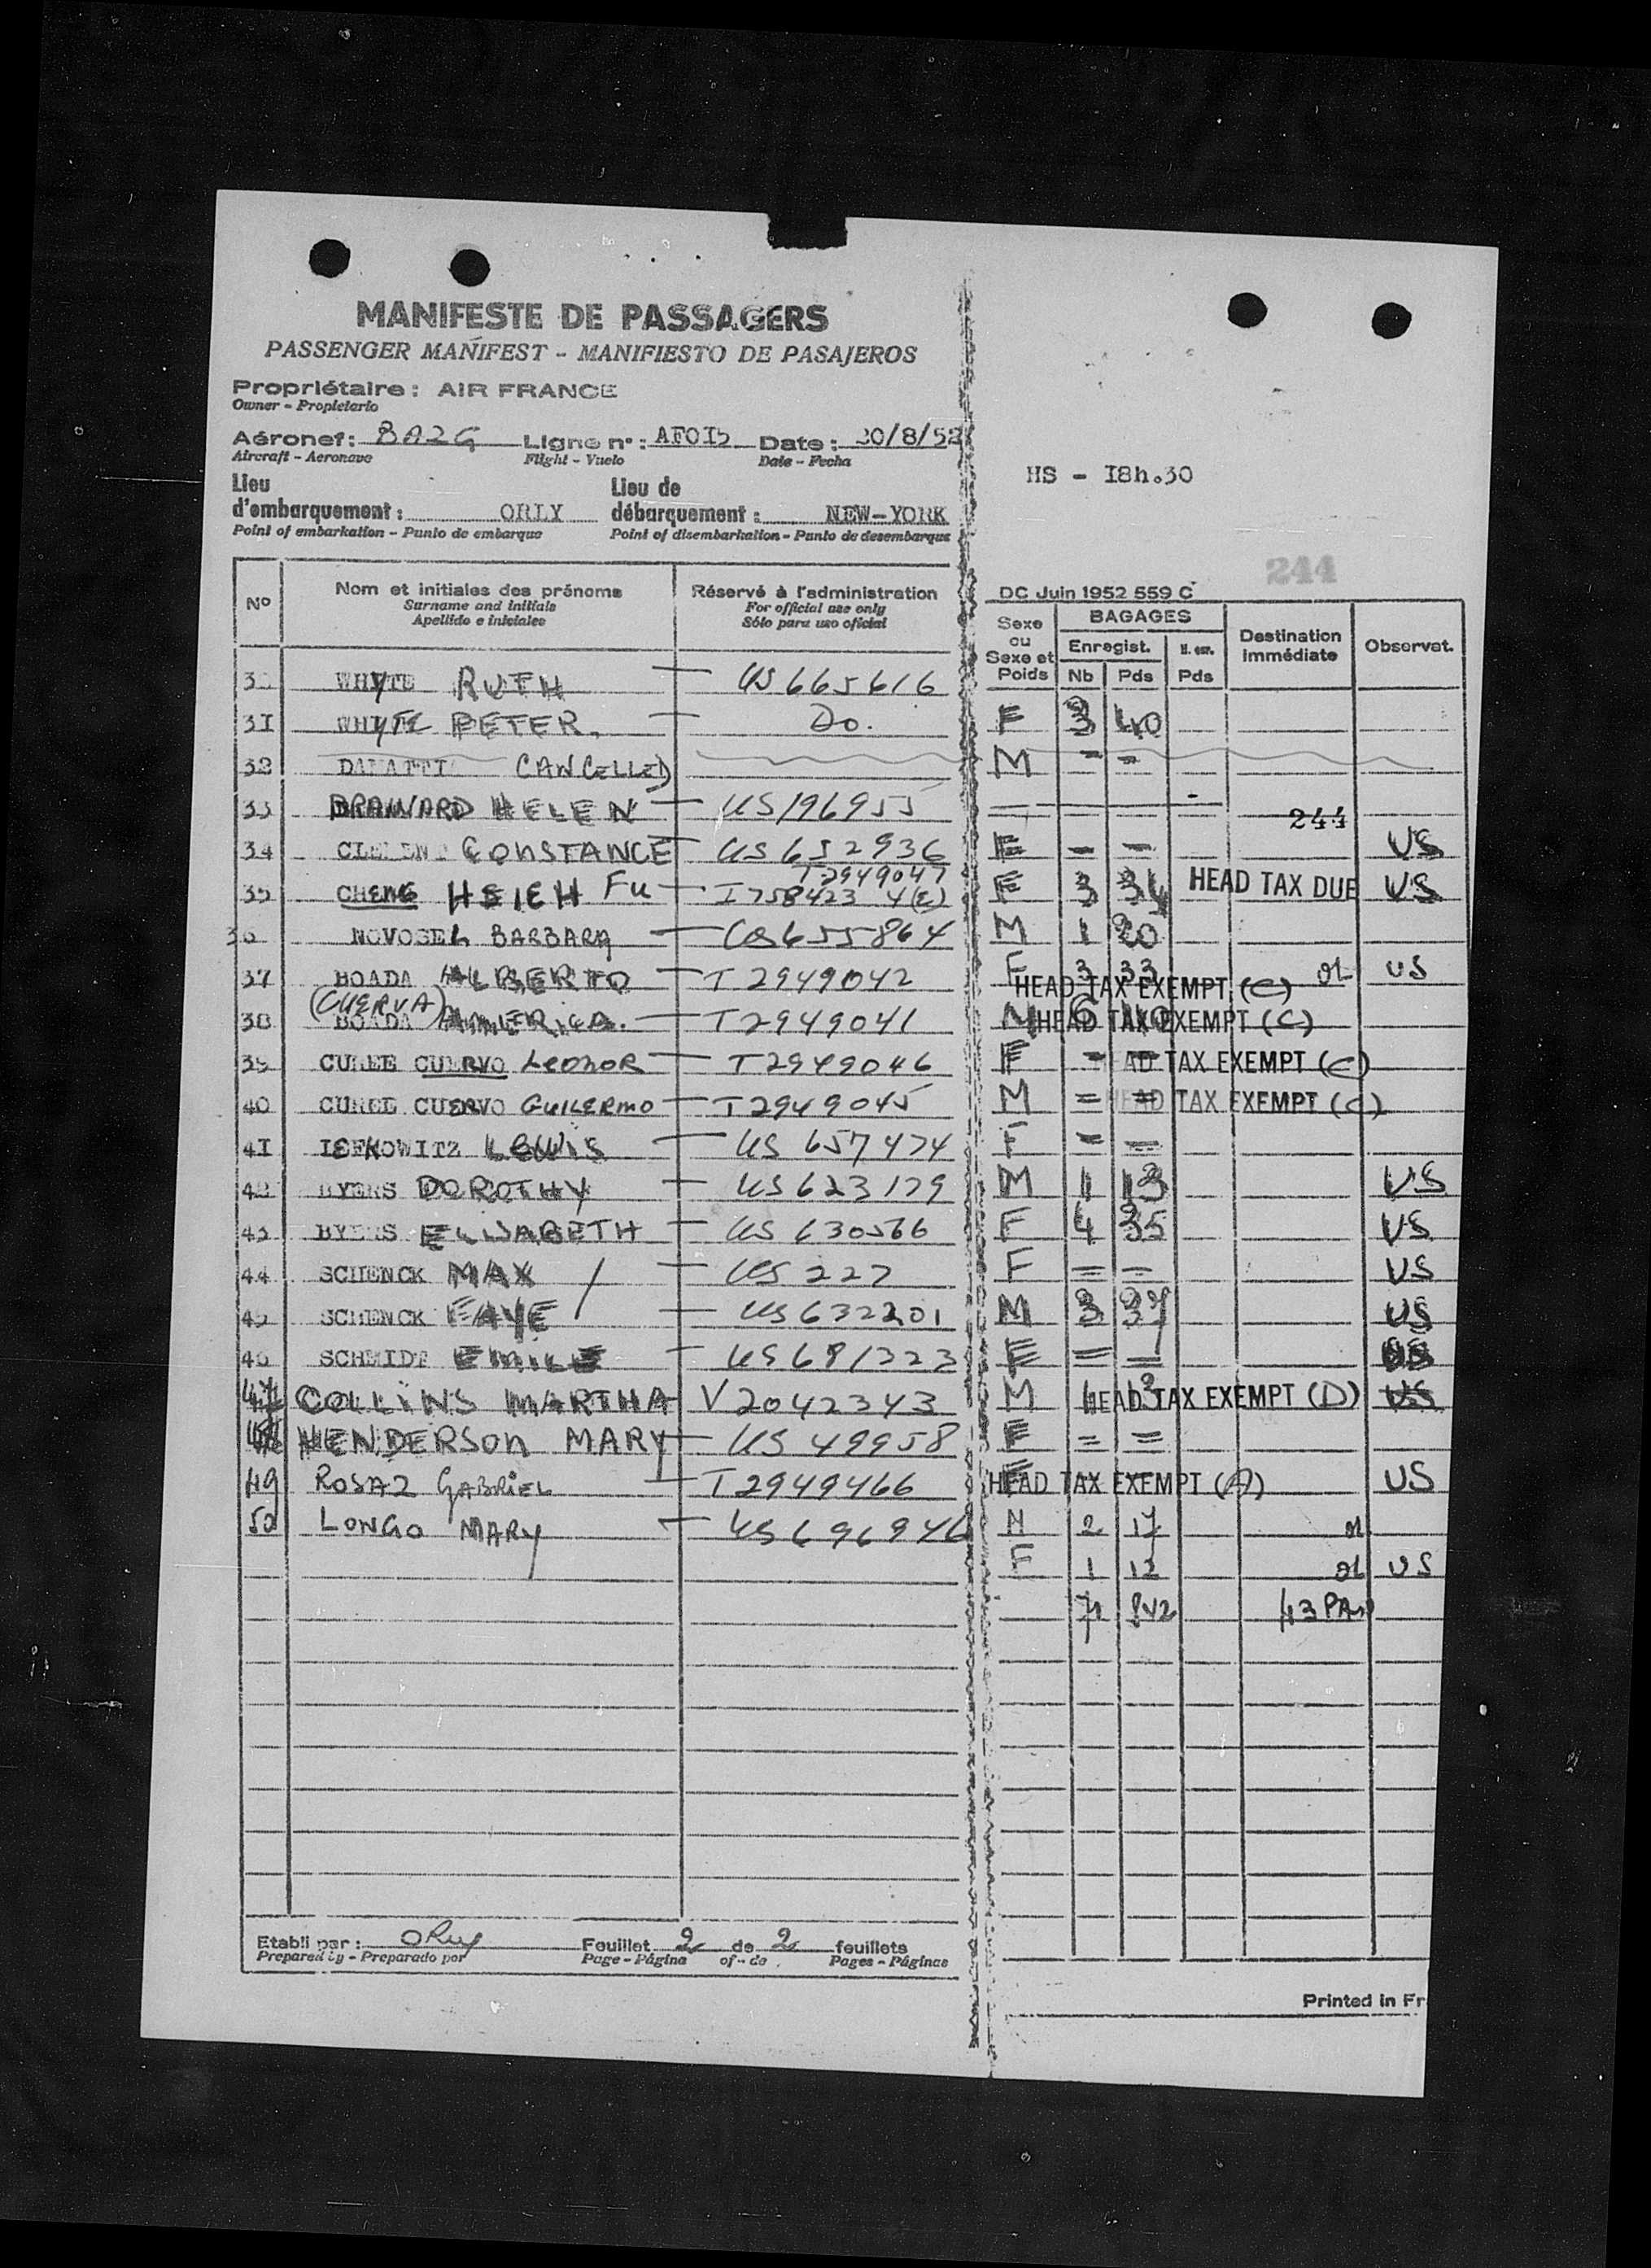 MANIFESTE DE PASSAGERS
PASSENGER MANIFEST - MANIFIESTO DE PASAJEROS
Propriétaire : AIR FRANCE
Owner - Propietario
Aéronef : BAZG Ligne n° : AF0I5 Date : 20/8/52
Aircraft - Aeronave Flight - Vuelo Date - Fecha
HS - I8h.30
Lieu d'embarquement : ORLY Lieu de débarquement : NEW-YORK
Point of embarkation - Punto de embarque Point of disembarkation - Punto de desembarque
244
DC Juin 1952 559 C
N° Nom et initiales des prénoms Réservé à l'administration
Surname and initials For official use only
Apellido e iniciales Sólo para uso oficial
Sexe ou Sexe et Poids BAGAGES Destination immédiate Observat.
Enregist. N. enr.
Nb Pds Pds
30 WHYTE RUTH — US 665616
3I WHYTE PETER. — Do. F 3 40
32 CANCELLED M - -
33 BRAINARD HELEN — US 196955
244
34 CONSTANCE — US 652936 F - - US
T-2949047
35 CHENG HSIEH Fu — I 758423 4(E) F 3 34 HEAD TAX DUE US
36 NOVOSEL BARBARA — US 655864 M 1 20
37 BOADA ALBERTO — T 2949042 F 3 33 US
HEAD TAX EXEMPT (C)
(CUERVA)
38 BOADA AMERICA. — T 2949041 M HEAD TAX EXEMPT (C)
39 CUERVO LEONOR — T 2949046 F - HEAD TAX EXEMPT (C)
40 CUERVO GUILERMO — T 2949045 M = HEAD TAX EXEMPT (C)
4I LEFKOWITZ LEWIS — US 657474 F = =
42 BYERS DOROTHY — US 623179 M 1 13 US
43 BYERS ELISABETH — US 630566 F 4 35 US
44 SCHENCK MAX / — US 227 F = - US
45 SCHENCK FAYE — US 632201 M 3 37 US
46 SCHMIDT EMILE — US 681323 F = = US
47 COLLINS MARTHA — V 2042343 M 1 13 HEAD TAX EXEMPT (D) US
48 HENDERSON MARY — US 49958 F = =
49 ROSAZ GABRIEL — T 2949466 HEAD TAX EXEMPT (A) US
50 LONGO MARY — US 696946 M 2 17
F 1 12 US
71 43 PAX
Etabli par : Orly Feuillet 2 de 2 feuillets
Prepared by - Preparado por Page - Página of - de Pages - Páginas
Printed in Fr